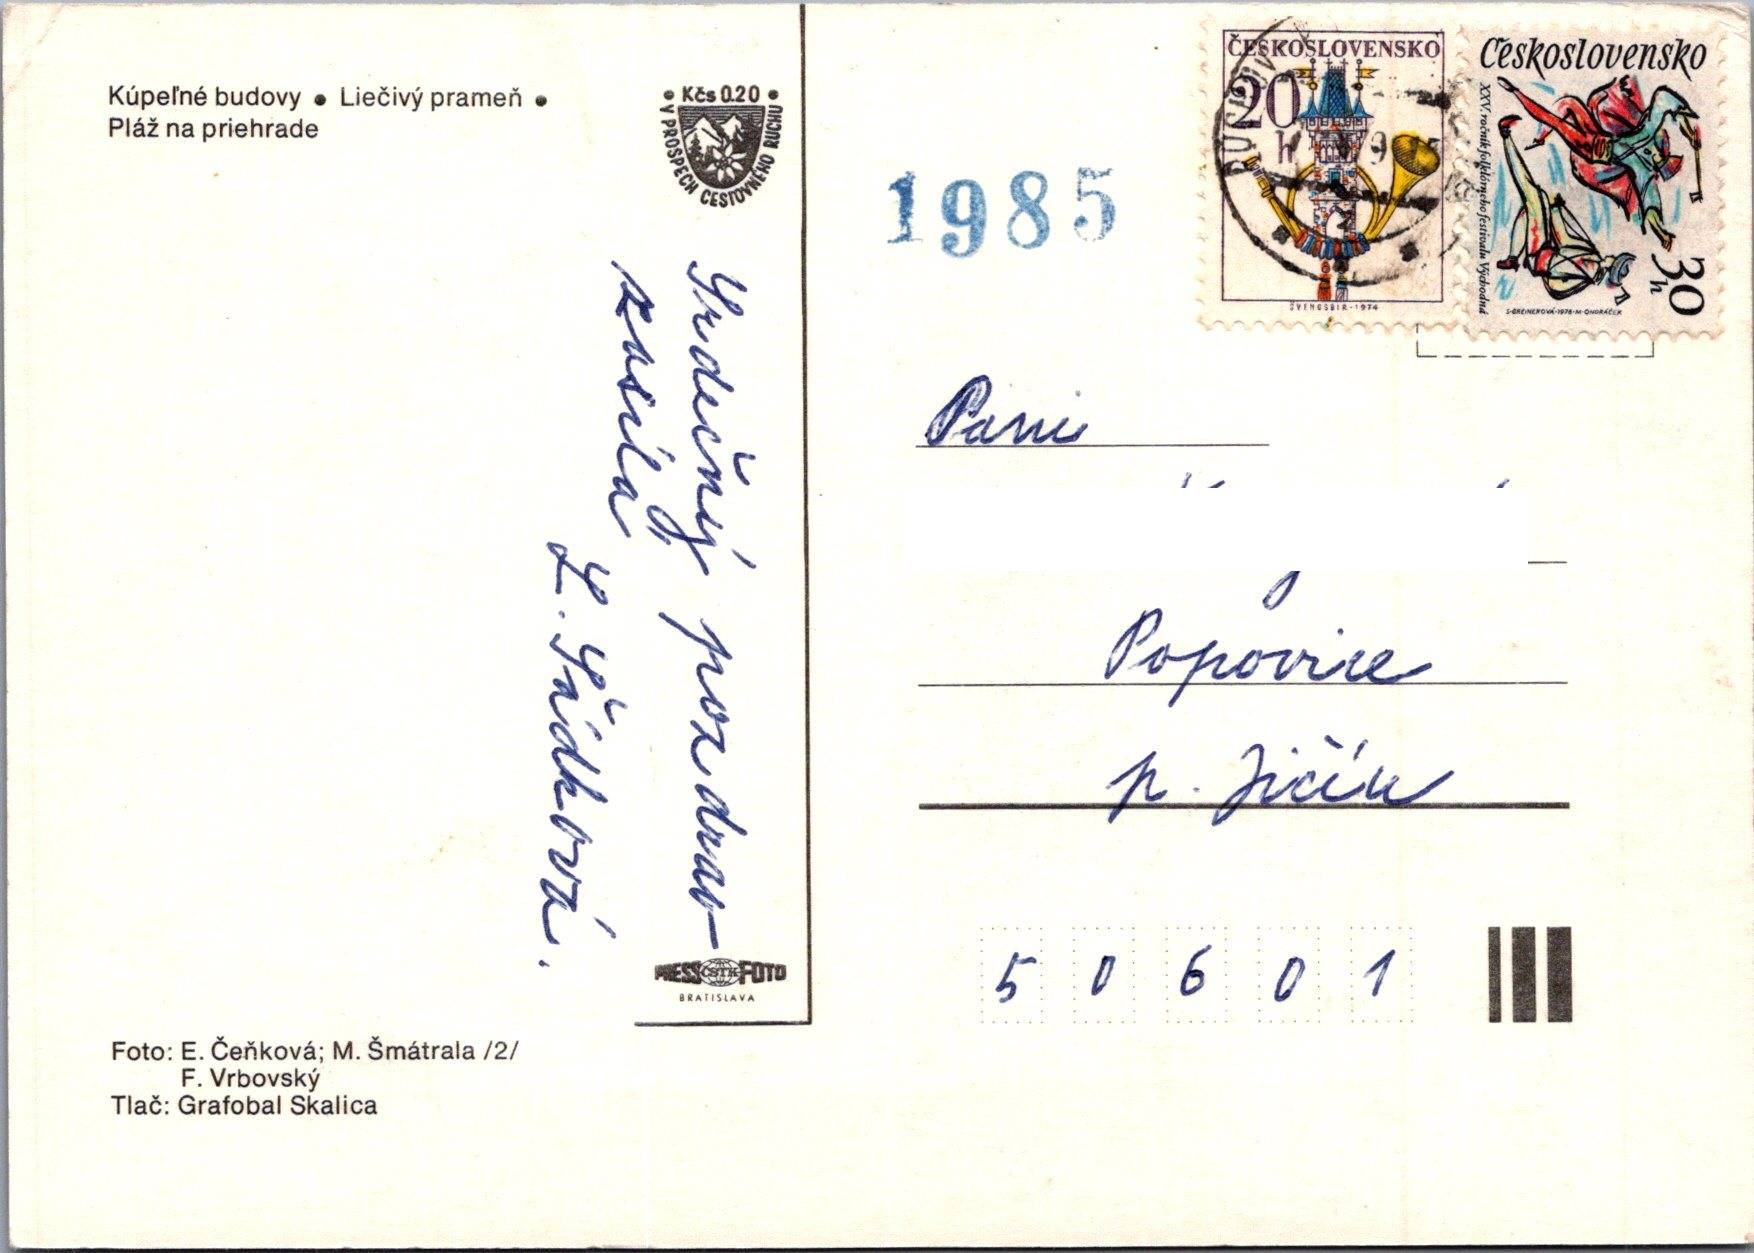 Kúpeľné budovy • Liečivý prameň •
Pláž na priehrade
• Kčs 0.20 •
V PROSPECH CESTOVNÉHO RUCHU
Srdečný pozdrav
zasílá
L. Sádková.
PRESS ČSTK FOTO
BRATISLAVA
Foto: E. Čeňková; M. Šmátrala /2/
F. Vrbovský
Tlač: Grafobal Skalica
1985
ČESKOSLOVENSKO
20
h
ŠVENGSBIR-1974
Československo
XXV. ročník folklórneho festivalu Východná
30
h
S·GREINEROVÁ·1978·M·ONDRÁČEK
Paní
Popovice
p. Jičín
50601